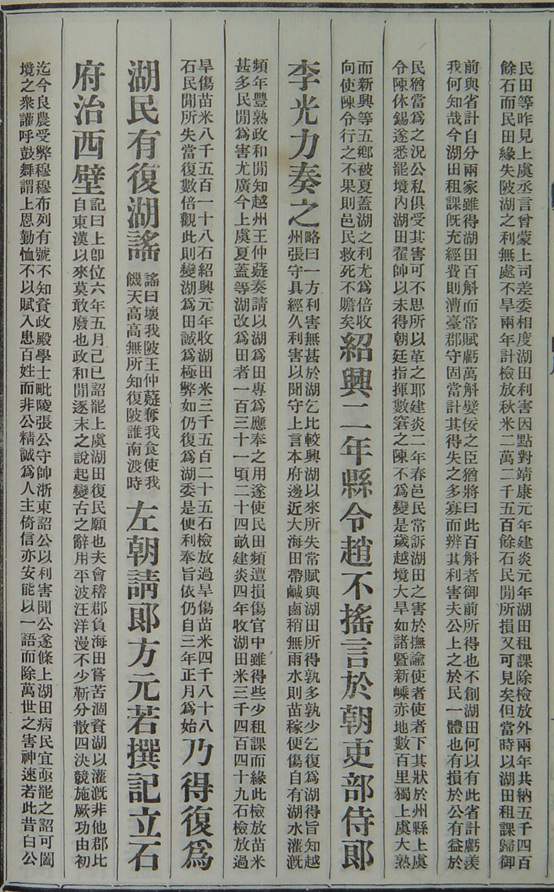 民田等昨見上虞丞言曾蒙上司差委相度湖田利害因點對靖康元年建炎元年湖田租課除檢放外兩年共納五千四百
餘石而民田緣失陂湖之利無處不旱兩年計檢放秋米二萬二千五百餘石民閒所損又可見矣但當時以湖田租課歸御
前與省計自分兩家雖得湖田百斛而常賦虧萬斛嬖佞之臣猶將曰此百斛者御前所得也不創湖田何以有此省計虧羨
我何知哉今湖田租課旣充經費則漕臺郡守固當計其得失之多寡而辨其利害夫公上之於民一體也有損於公有益於
民猶當爲之況公私俱受其害可不思所以革之耶建炎二年春邑民常訴湖田之害於撫諭使者使者下其狀於州縣上虞
令陳休錫遂悉罷境內湖田翟帥以未得朝廷指揮數窘之陳不爲變是歲越境大旱如諸暨新嵊赤地數百里獨上虞大熟
而新興等五鄕被夏蓋湖之利尤爲倍收
向使陳令行之不果則邑民救死不贍矣
紹興二年縣令趙不搖言於朝吏部侍郞
李光力奏之
略曰一方利害無甚於湖乞比較興湖以來所失常賦與湖田所得孰多孰少乞復爲湖得旨知越
州張守具經久利害以聞守上言本府邊近大海田帶鹹鹵稍無雨水則苗稼便傷自有湖水灌漑
頻年豐熟政和閒知越州王仲薿奏請以湖爲田專爲應奉之用遂使民田頻遭損傷官中雖得些少租課而緣此檢放苗米
甚多民閒爲害尤廣今上虞夏蓋等湖改爲田者一百三十一頃二十四畝建炎四年收湖田米三千四百四十九石檢放過
旱傷苗米八千五百一十八石紹興元年收湖田米三千五百二十五石檢放過旱傷苗米四千八十八
石民閒所失當復數倍觀此則變湖爲田誠爲極弊如仍復爲湖委是便利奉旨依仍自三年正月爲始
乃得復爲
湖民有復湖謠
謠曰壞我陂王仲薿奪我食使我
饑天高高無所知復陂誰南渡時
左朝請郞方元若撰記立石
府治西壁
記曰上卽位六年五月己巳詔罷上虞湖田復民願也夫會稽郡負海田嘗苦涸資湖以灌漑非他郡比
自東漢以來莫敢廢也政和閒逐末之說起變古之辭用平波汪洋漫不少靳分散四決競施厥功由初
迄今良農受弊穆穆布列有號不知資政殿學士毗陵張公守帥浙東詔公以利害聞公遂條上湖田病民宜亟罷之詔可闔
境之衆讙呼鼓舞謂上恩勤恤不以賦入患百姓而非公精誠爲人主倚信亦安能以一語而除萬世之害神速若此昔白公